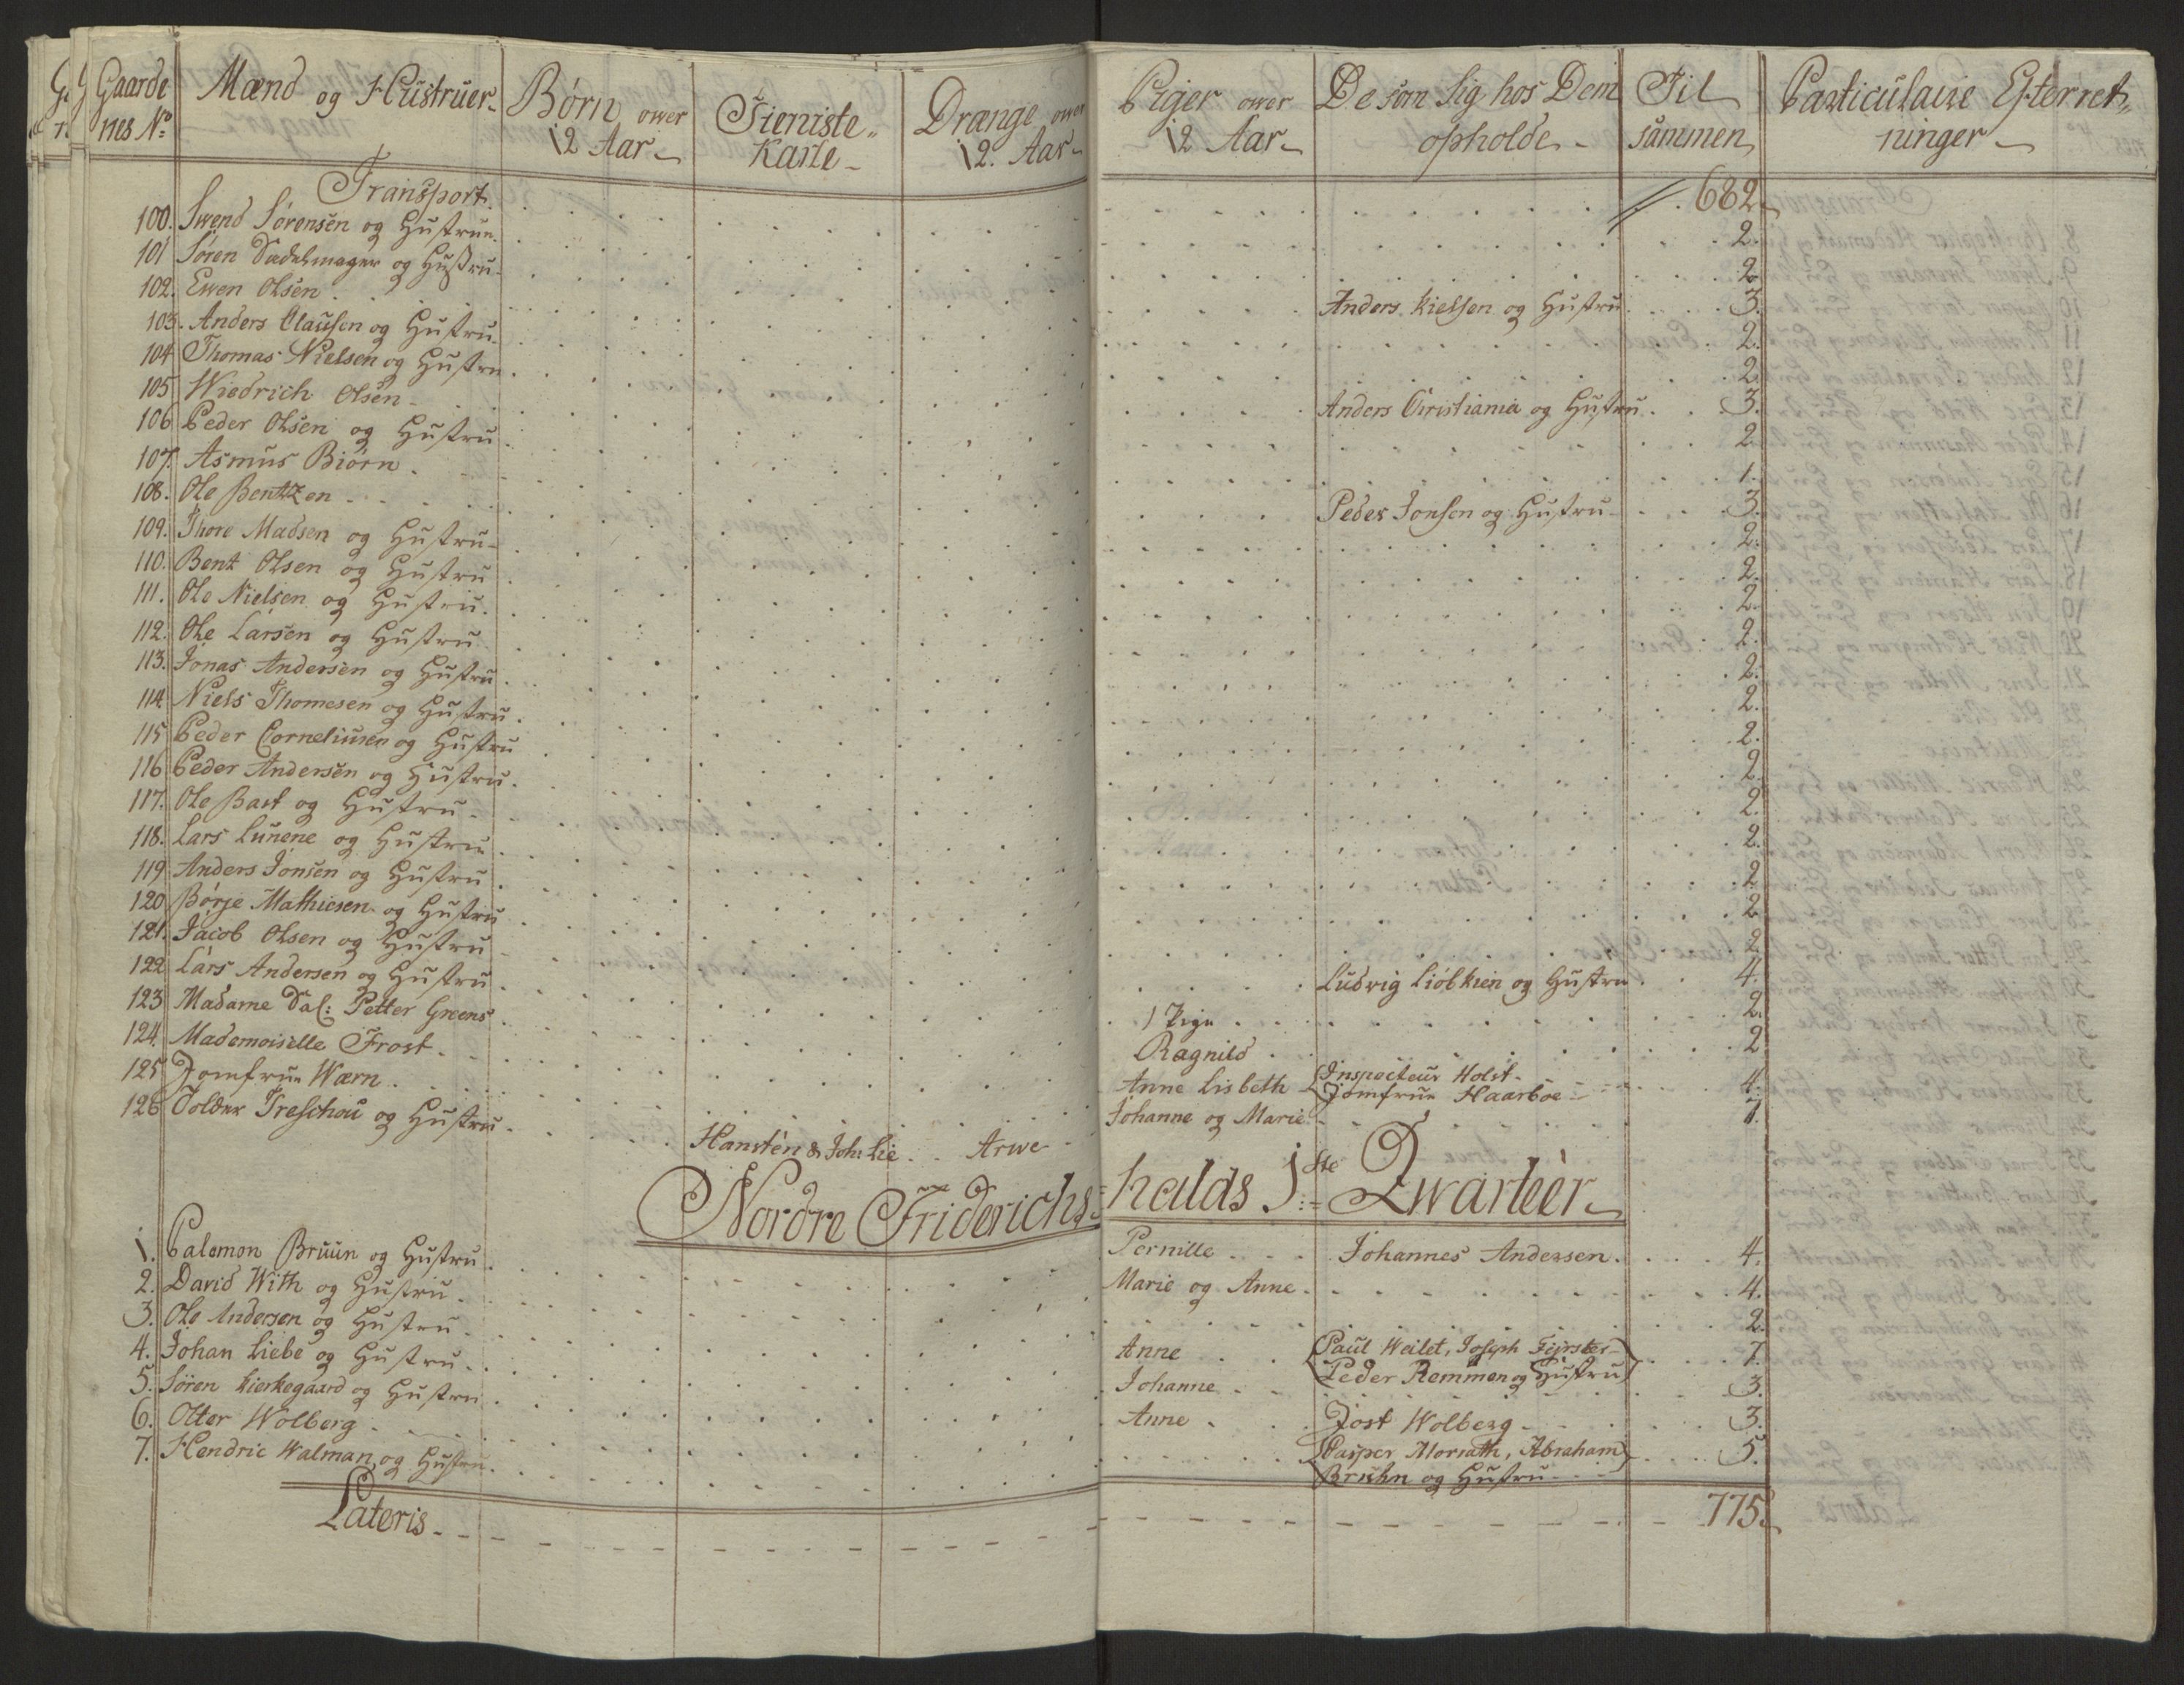 Gaardenes No | Mænd og Hustruer | Børn over 12 Aar | Tieniste Karle | Drænge over 12. Aar | Piger over 12 Aar | De som Sig hos Dem opholde | Til sammen | Particulaire Efterretninger
Transport 682
100. Swend Sørensen og Hustrue 2.
101 Søren Sadelmager og Hustru 2.
102. Ewen Olsen Anders Kielsen og Hustru 3.
103. Anders Clausen og Hustru 2.
104 Thomas Nielsen og Hustru 2.
105 Wiedrich Olsen Anders Christiania og Hustru 3.
106 Peder Olsen og Hustru 2.
107. Asmus Biørn 1.
108. Ole Bentzen Peder Jonsen og Hustru 3.
109. Thore Madsen og Hustru 2.
110. Bent Olsen og Hustru 2.
111. Ole Nielsen og Hustru 2.
112. Ole Larsen og Hustru 2.
113. Jonas Andersen og Hustru 2.
114 Niels Thomesen og Hustru 2.
115 Peder Corneliusen og Hustru 2.
116 Peder Andersen og Hustru 2.
117. Ole Bast og Hustru 2.
118. Lars Lunene og Hustru 2.
119 Anders Jonsen og Hustru 2
120 Børje Mathiesen og Hustru 2
121. Jacob Olsen og Hustru 2
122 Lars Andersen og Hustru Ludvig Liøbkien og Hustru 4.
123 Madame Sal: Petter Greens 1 Pige 2.
124. Mademoiselle Frost Ragnild 2
125 Jomfrue Wærn Anne Lisbeth Inspecteur Holst Jomfrue Haarboe 4.
126 Tolder Treschou og Hustru Hansten & Joh: Lie Arwe Johanne og Marie 7.
Nordre Friderichshalds 1ste Qwarteer
1. Palemon Bruun og Hustru Pernille Johannes Andersen 4.
2. David With og Hustru Marie og Anne 4.
3. Ole Andersen og Hustru 2.
4. Johan Liebe og Hustru Anne Paul Weilet, Joseph Fejrster Peder Remmen og Hustru 7.
5. Søren Kierkegaard og Hustru Johanne 3.
6. Otter Wolberg Anne Jost Wolberg 3.
7. Hendric Walman og Hustru Casper Morrath, Abraham Bruhn og Hustru 5.
Lateris 775.